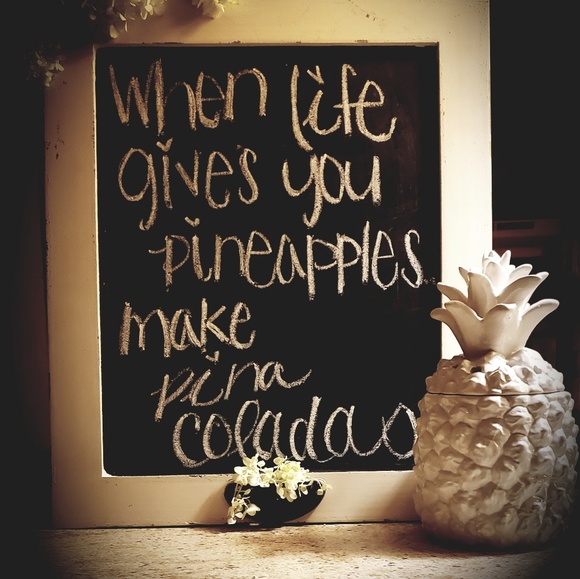 When life
gives you
pineapples
make
pina
coladas